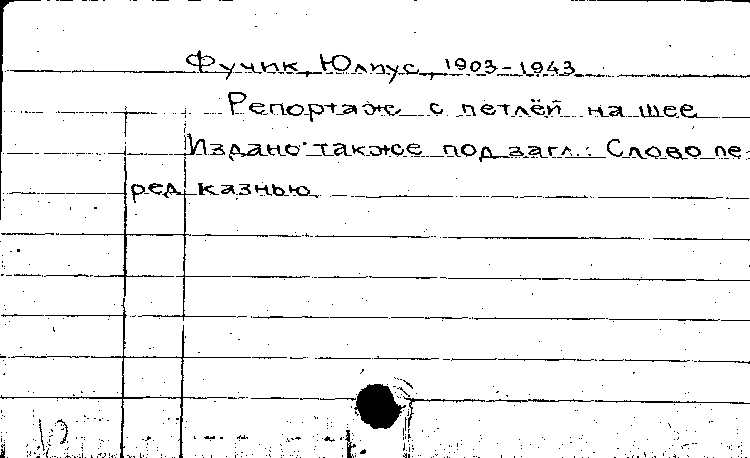 Фучик, Юлиус, 1903-1943
Репортаж с петлёй на шее
Издано также под загл.: Слово пе-
ред казнью